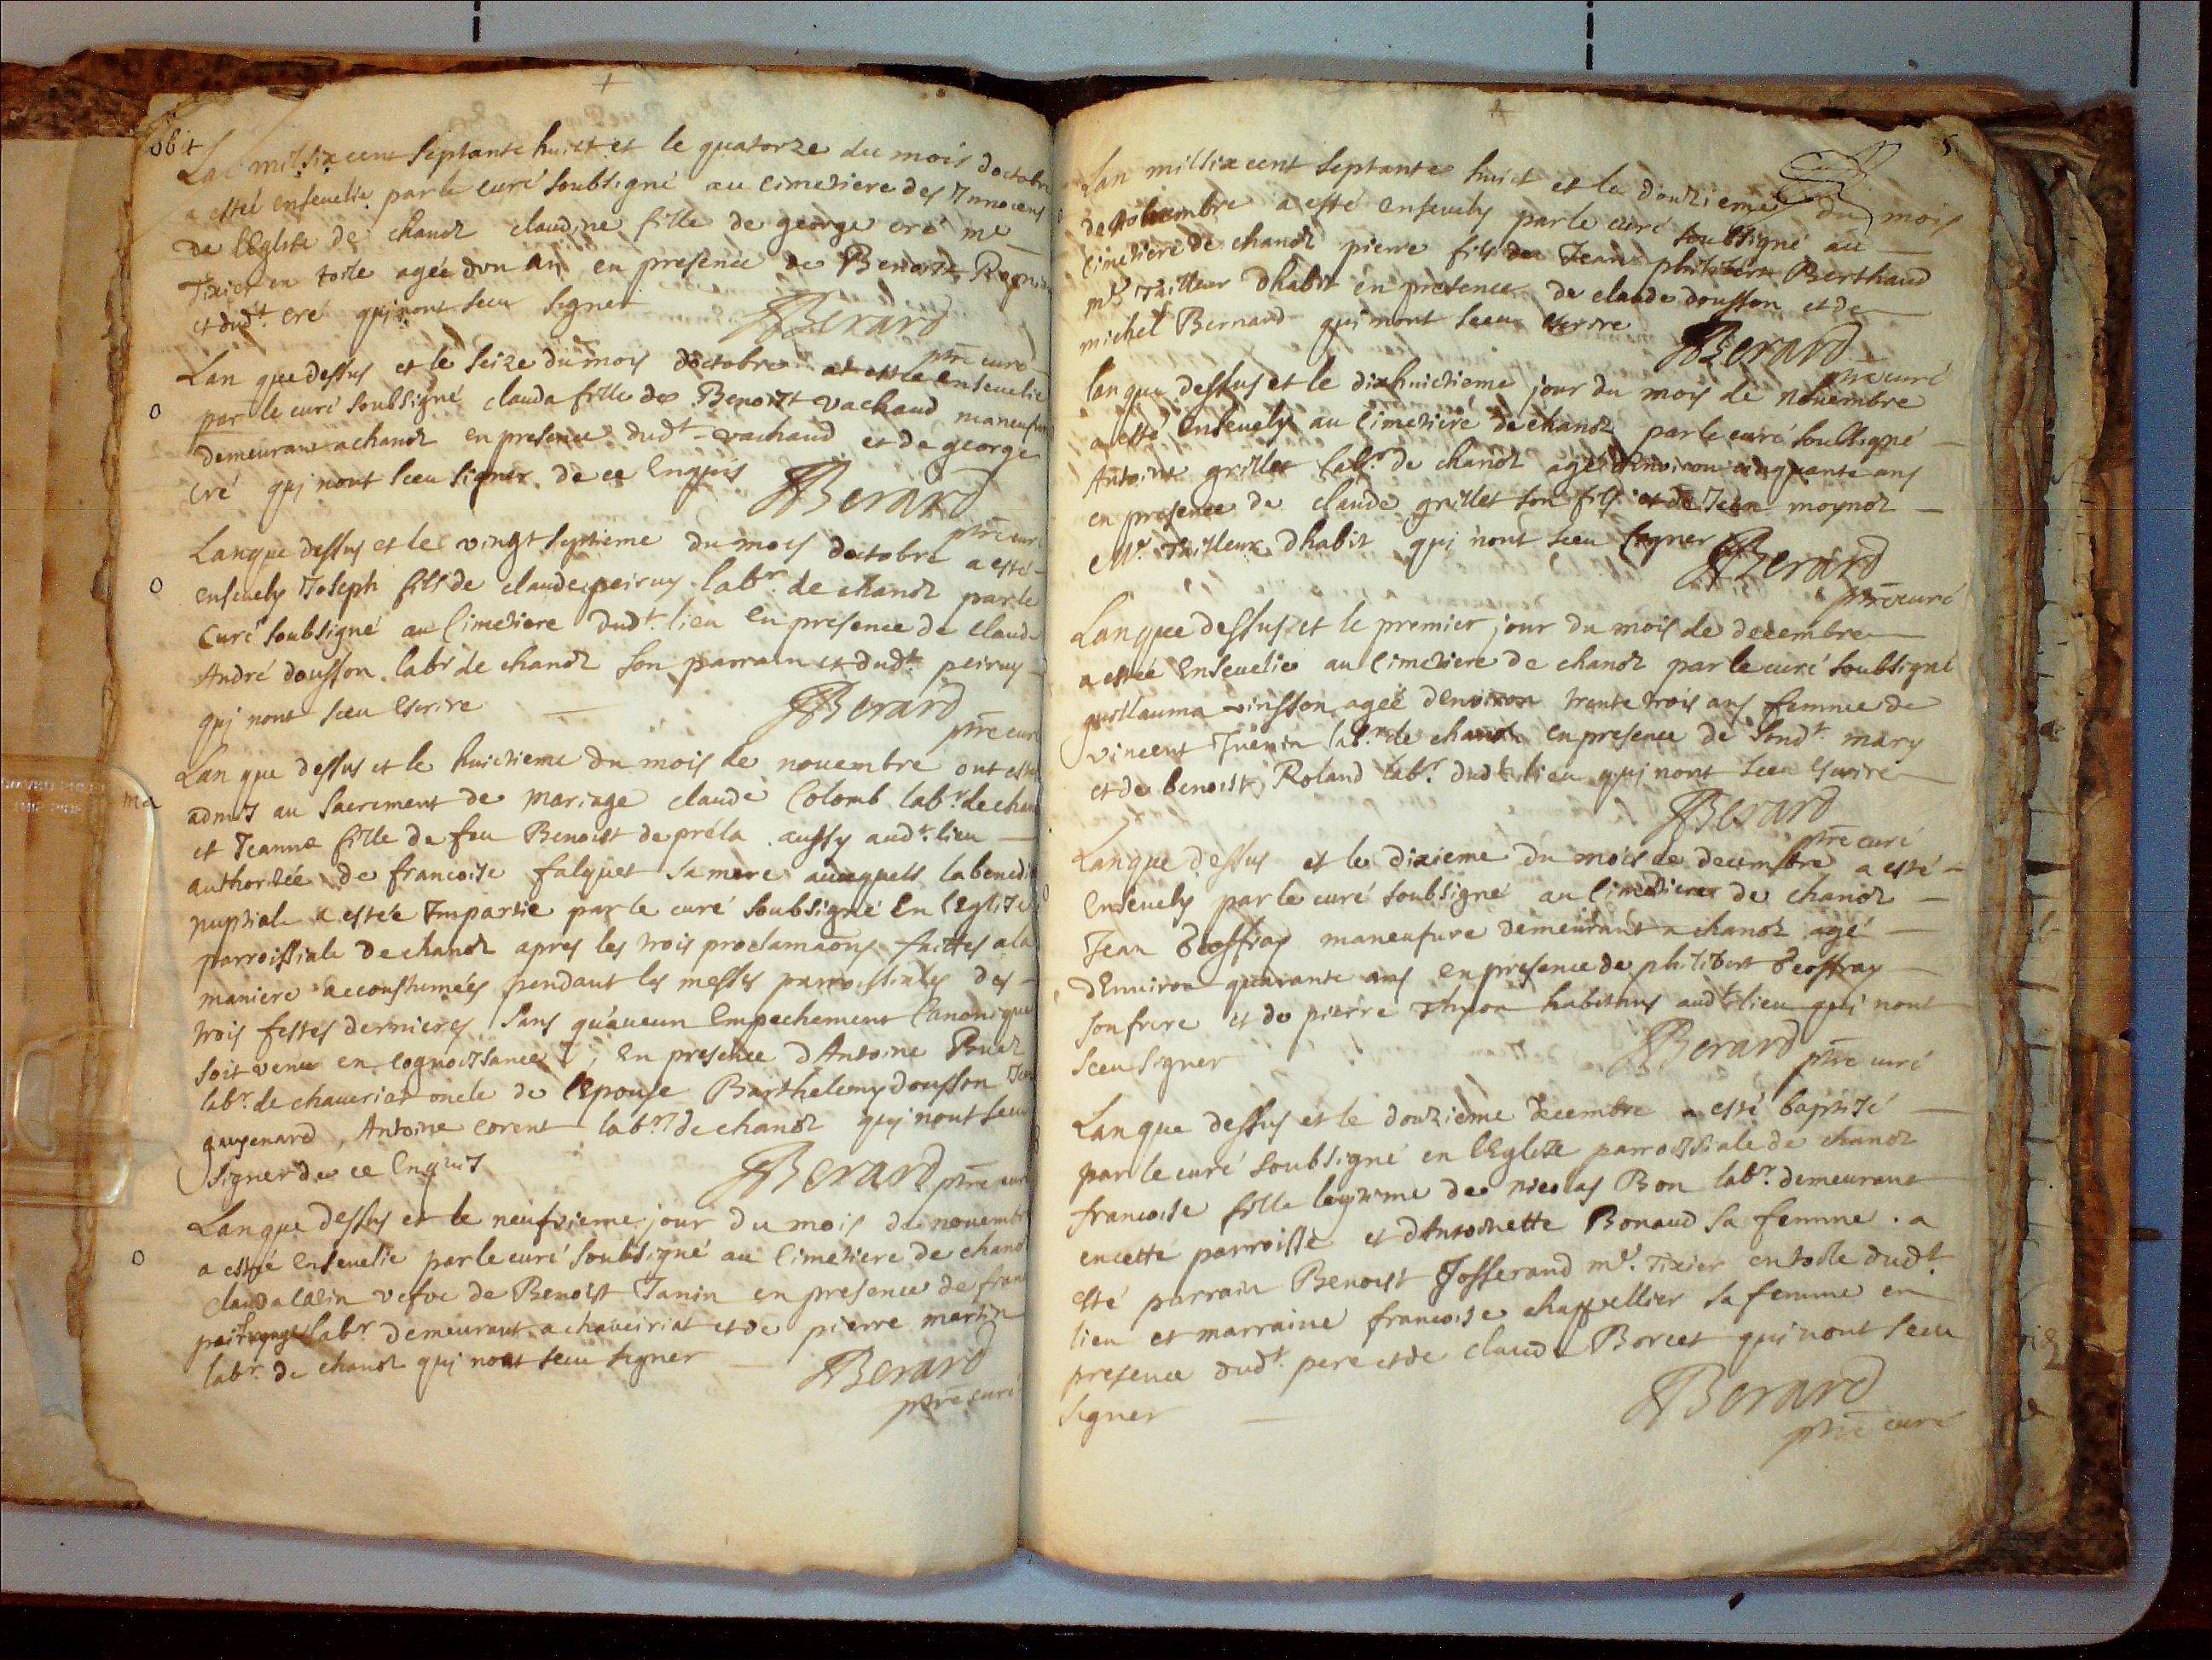 obit
Lan mil six cent septante huict et le quatorze du mois doctobre
a estéé enseuelie par le curé soubsigné au cimetiere des Innocens
de lEglise de chanoz claudine fille de george cré me
Tixier en toile agée dun an en presence de Benoist
et dudt. cré qui nont sceu signer
Berard
ptre curé
Lan que dessus et le seize du mois doctobre a estée enseuelie
o
par le curé soubsigné clauda fille de Benoist vachaud maneufure
demeurant a chanoz en presence dudt. vachaud et de george
cré qui nont sceu signer de ce Enquis
Berard
ptre curé
Lan que dessus et le vingt septieme du mois doctobre a esté
o
enseuely Joseph fils de claude peiruy labr. de chanoz par le
curé soubsigné au cimetiere dudt. lieu en presence de claude
André dousson labr de chanoz son parrain et dudt. peiruy
qui nont sceu escrire
Berard
ptre curé
Lan que dessus et le huictieme du mois de nouembre ont esté
ma
admis au sacrement de mariage claude Colomb labr. de chanoz
et Jeanne fille de feu Benoist de préla aussy audt. lieu
authorisée de francoise falquet sa mere auxquels la benedi
nuptiale a estée Impartie par le curé soubsigné En lEglise
parroissiale de chanoz apres les trois proclamaons faittes a la
maniere accoustumées pendant les messes parroissiales des
trois festes dernieres sans quaucun Empechement Canonique
soit venu en cognoissance, en presence dAntoine
labr. de chaueriat oncle de lEpouse Barthelemy dousson
guyenard, Antoine corent labr. de chanoz qui nont sceu
signer de ce Enquis
Berard ptre curé
Lan que dessus et le neufuieme jour du mois de nouembre
o
a estée enseuelie par le curé soubsigné au cimetiere de chanoz
clauda vefve de Benoist Janin en presence de
labr demeurant a chaueiriat et de pierre martin
labr. de chanoz qui nont sceu signer
Berard
ptre curé
5
Lan mil six cent septante huict et le douzieme du mois
de nouembre a esté enseuely par le curé soubsigné au
cimetiere de chanoz pierre fils de Jean philibert Berthaud
mr. tailleur dhabit en presence de claude dousson et de
michel Bernard qui nont sceu escrire
Berard
ptre curé
lan que dessus et le dixhuictieme jour du mois de nouembre
a esté enseuely au cimetiere de chanoz par le curé soubsigné
Antoine grillet labr. de chanoz agé denviron cinquante ans
en presence de claude grillet son fils et de Jean moynoz
Mr. Tailleur dhabit qui nont sceu signer
Berard
ptre curé
Lan que dessus et le premier jour du mois de decembre
a estée enseuelie au cimetiere de chanoz par le curé soubsigné
guillauma vinsson agée denviron trente trois ans femme de
vincent Juenin labr. de chanoz en presence de sondt. mary
et de benoist Roland labr. dudt. lieu qui nont sceu escrire
Berard
ptre curé
Lan que dessus et le dixieme du mois de decembre a esté
o
enseuely par le curé soubsigné au cimetiere de chanoz
Jean Geoffray maneufure demeurant a chanoz agé
dEnuiron quarante ans en presence de philibert Geoffray
son frere et de pierre habitans audt. lieu qui nont
sceu signer
Berard ptre curé
Lan que dessus et le douzieme decembre a esté baptisé
par le curé soubsigné en lEglise parroissiale de chanoz
francoise fille legitime de nicolas Bon labr. demeurant
en cette parroisse et dAntoinette Bonaud sa femme. a
esté parrain Benoist Josserand mr. Tixier en toile dudt.
lieu et marraine francoise chappellier sa femme en
presence dudt. pere et de claude Borcet qui nont sceu
signer
Berard
ptre curé